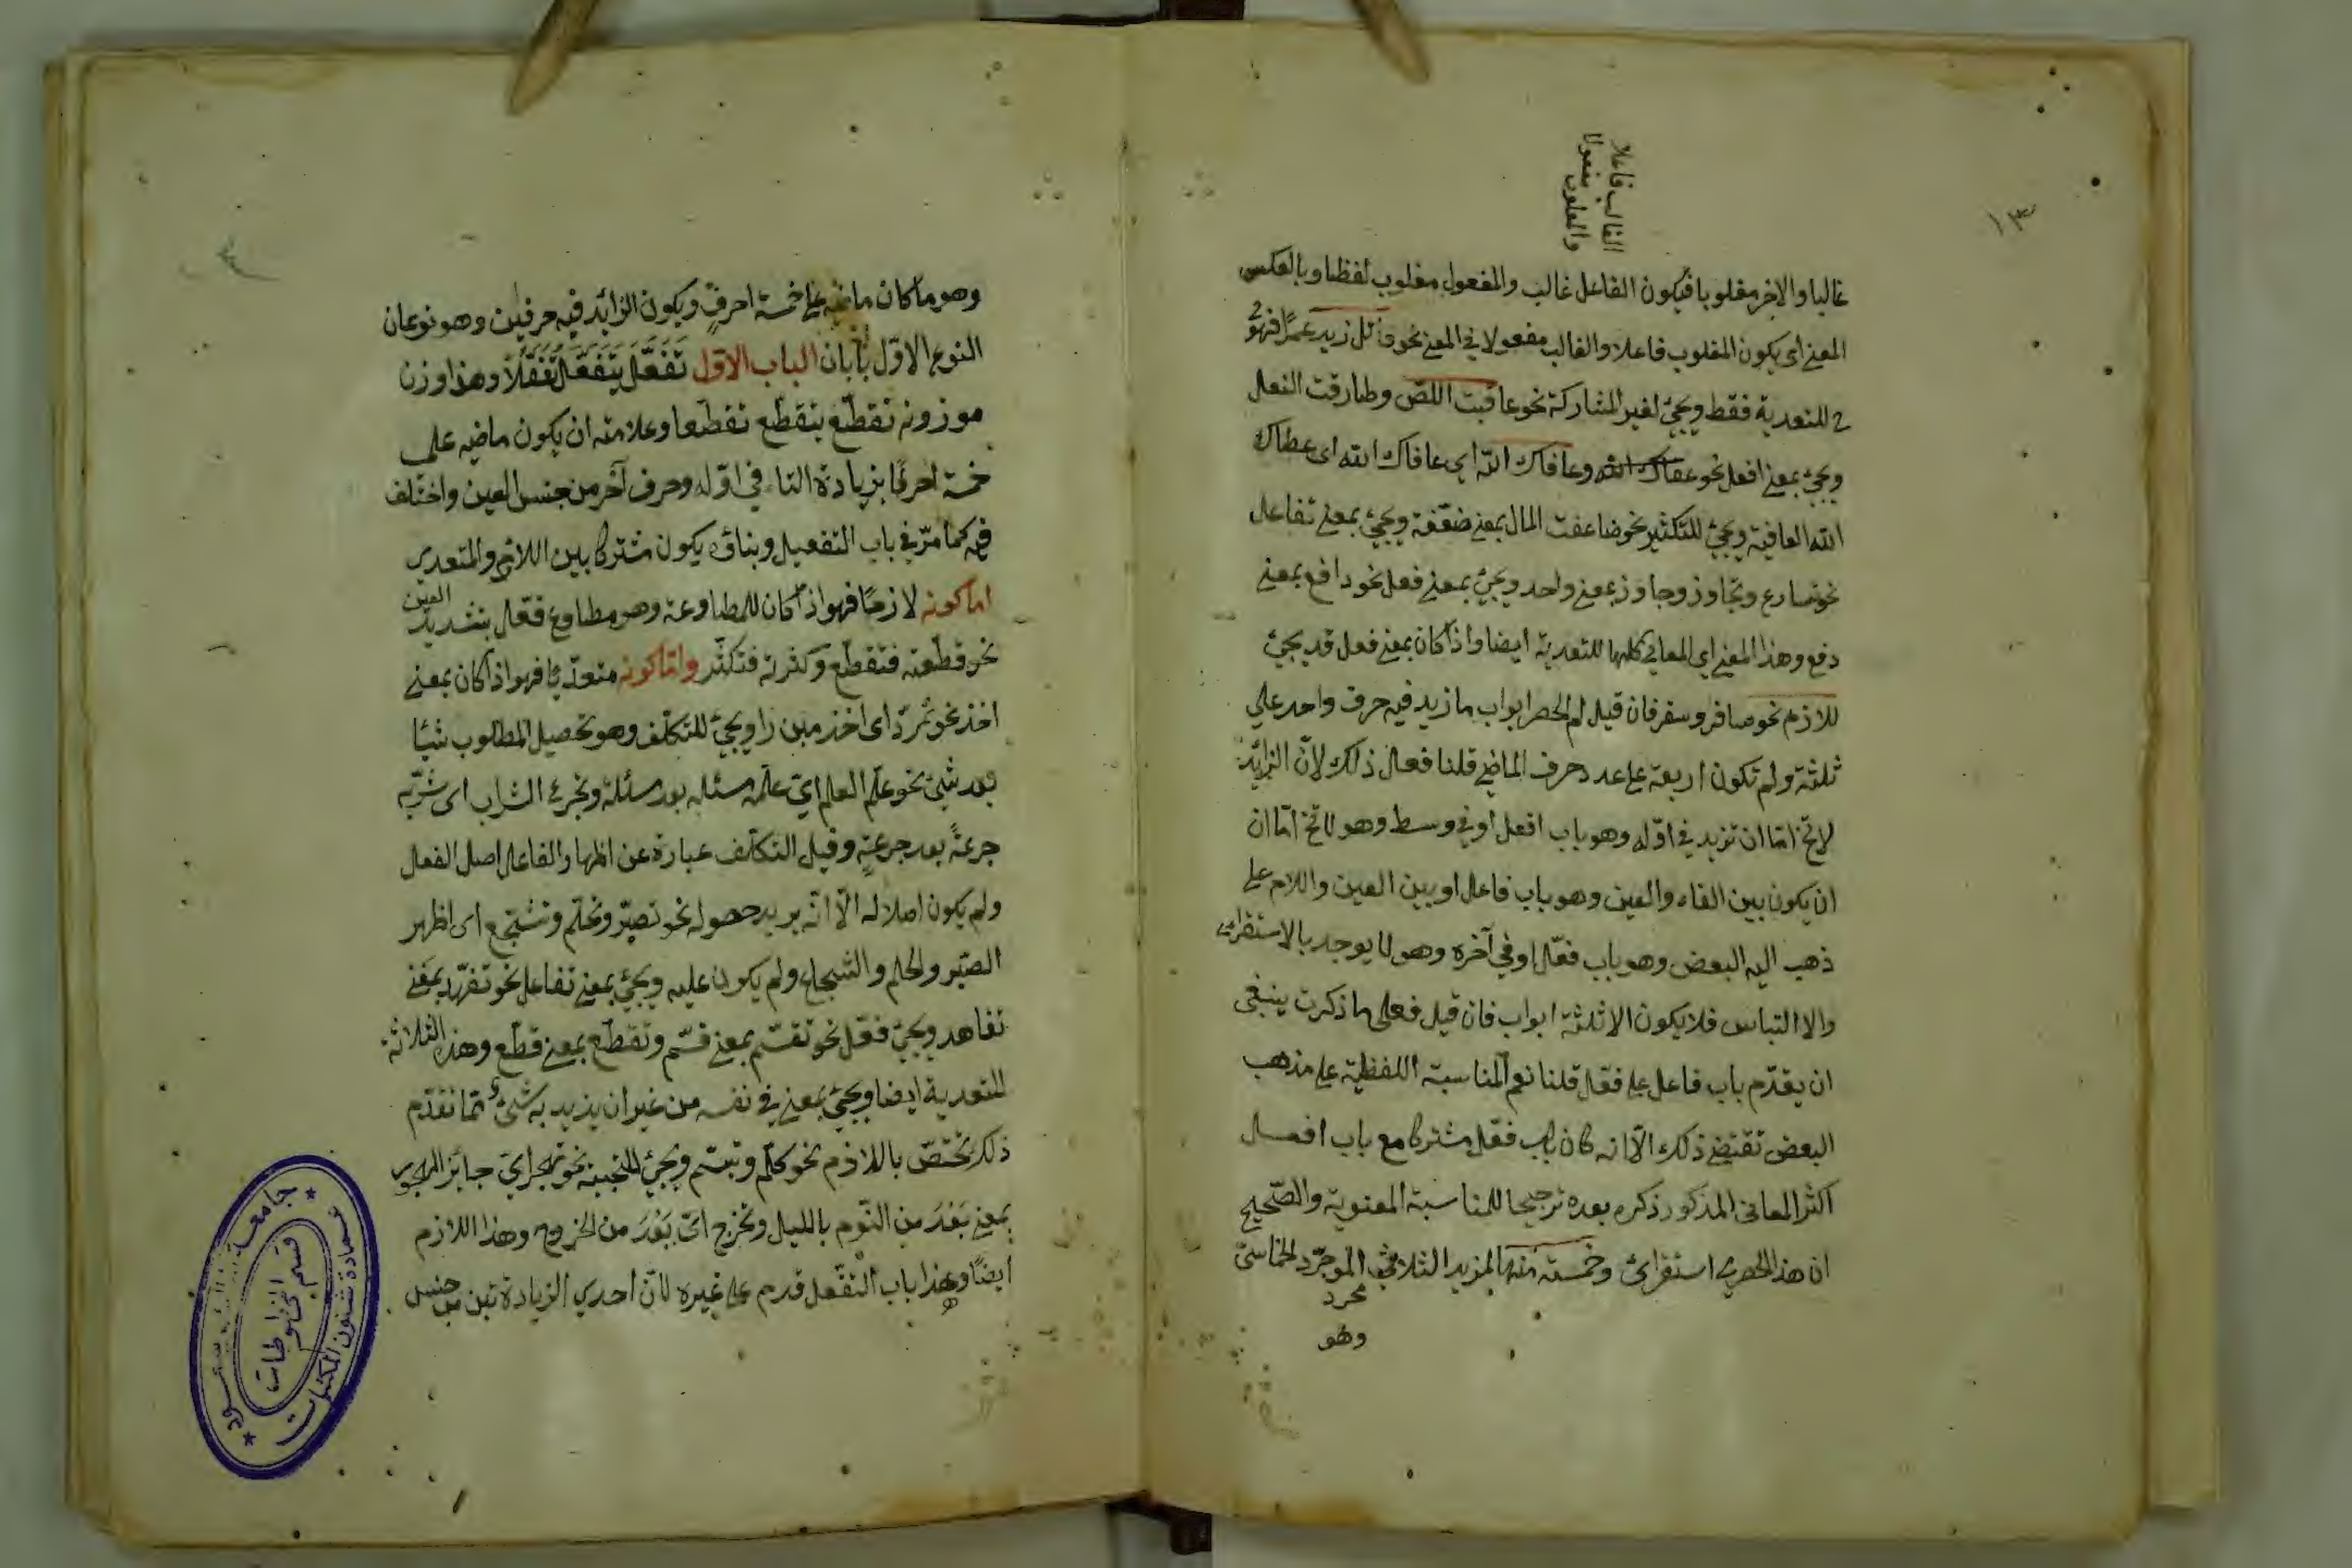 ١٣
الغالب فاعلا
والمغلوب مفعولا
غالبا والاخر مغلوبا فيكون الفاعل غالب والمفعول مغلوب لفظا وبالعكس
المعنى اى يكون المغلوب فاعلا والغالب مفعولا فى المعنى نحو قاتل زيد عمرًا فهو
ح للتعدية فقط ويجئ لغير المشاركة نحو عاقبت اللصّ وطارقت النعل
ويجئ بمعنى افعل نحو وعافاك اللّه اى عافاك الله اى عطاك
الله العافية ويجئ للتكثير نحو ضاعفت المال بمعنى ضعّفته ويجئ بمعنى تفاعل
نحو تسارع وتجاوز وجاوز بمعنى واحد ويجئ بمعنى فعل نحو دافع بمعنى
دفع وهذا المعنى اى المعانى كلها للتعدية ايضا واذا كان بمعنى فعل قد يجئ
للازم نحو سافر وسفر فان قيل لم الحصر ابواب ما زيد فيه حرف واحد على
ثلثة ولم تكون اربعة على عدد حرف الماضى قلنا فعال ذلك لانّ الزائد
لا تخ امّا ان تزيد فى اوّله وهو باب افعل او فى وسط وهو لا تخ امّا ان
ان يكون بين الفاء والعين وهو باب فاعل او بين العين واللام على
ذهب اليه البعض وهو باب فعّل او فى آخره وهو لا يوجد بالاستقراء
والا التباس فلا يكون الا ثلثة ابواب فان قيل فعلى ما ذكرت ينبغى
ان يقدّم باب فاعل على فعّل قلنا نعم المناسبة اللفظية على مذهب
البعض تقتضى ذلك الّا انه كان باب فعّل مشتركا مع باب افعل
اكثر المعانى المذكور ذكره بعده ترجيحا للمناسبة المعنوية والصّحيح
ان هذا الحصر استقرائ وخمسة منها لمزيد الثلاثى الموجرّد الخماسىّ
مجرد
وهو
وهو ما كان ماضيه على خمسة احرفٍ ويكون الزائد فيه حرفين وهو نوعان
النوع الاوّل بابان الباب الاوّل تَفَعَّلَ يَتَفَعَّلُ تَفَعُّلًا وهذا وزن
موزونه تقطّع يتقطّع تقطّعا وعلامته ان يكون ماضيه على
خمسة احرف بزيادة التاء فى اوّله وحرف آخر من جنس العين واختلف
فيه كما مرّ فى باب التفعيل وبناؤه يكون مشتركا بين اللازم والمتعدى
اما كونه لازمًا فهو اذا كان للمطاوعة وهو مطاوع فعّل بتشديد العين
نحو قطّعته فتقطّع وكثرته فتكثّر وامّا كونه متعدّيًا فهو اذا كان بمعنى
اخذ نحو تبرزًا ويجئ للتكلّف وهو تحصيل المطلوب شيئا
بعد شئ نحو علّم العلم اى علّمه مسئلة بعد مسئلة وتجرع الشراب اى شربه
جرعةً بعد جرعةٍ وقيل التكلّف عبارة عن اظهار الفاعل اصل الفعل
ولم يكون اصلا له الّا انّه يريد حصوله نحو تصبّر وتحلّم وتشجّع اى اظهر
الصّبر والحلم والشجاع ولم يكون عليه ويجئ بمعنى تفاعل نحو تعهّد بمعنى
تعاهد ويجئ فعّل نحو تقسّم بمعنى قسّم وتقطّع بمعنى قطّع وهذه الثلاثة
للتعدية ايضا ويجئ بمعنى فى نفسه من غير ان يزيد به شئ ممّا تقدّم
ذلك تختصّ باللازم نحو تكلّم وتبسّم ويجئ للتجنب نحو
بمعنى بَعُدَ من النّوم بالليل وتحرّج اىّ بَعُدَ من الخروج وهذا اللازم
ايضًا وهذا باب التفعّل قدم على غيره لانّ احدي الزيادة تين من جنس
جامعة الملك سعود
قسم المخطوطات
عمادة شئون المكتبات